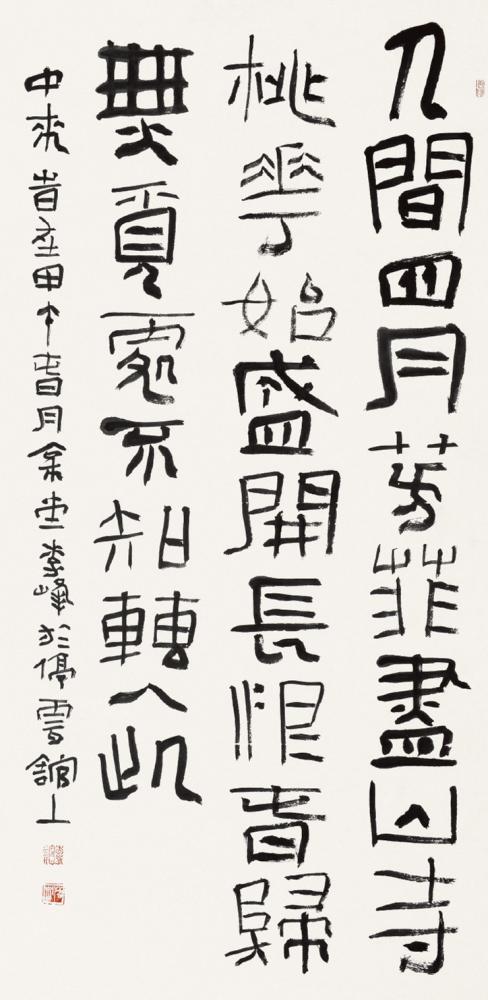 人間四月芳菲盡山寺
桃華始盛開長恨春歸
無覓處不知轉入此
中來 旹在甲午春月余堂李峰於停雲館上